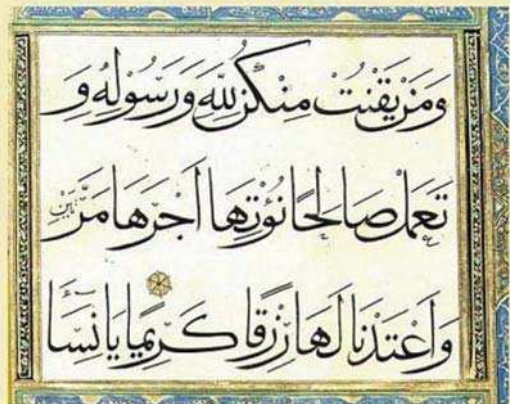 وَمَنْ يَقْنُتْ مِنْكُنَّ لِلّٰهِ وَرَسُولِهِ وَ
تَعْمَلْ صَالِحًا نُؤْتِهَا اَجْرَهَا مَرَّتَيْنِ
وَاَعْتَدْنَا لَهَا رِزْقًا كَرِيمًا يَا نِسَاءَ